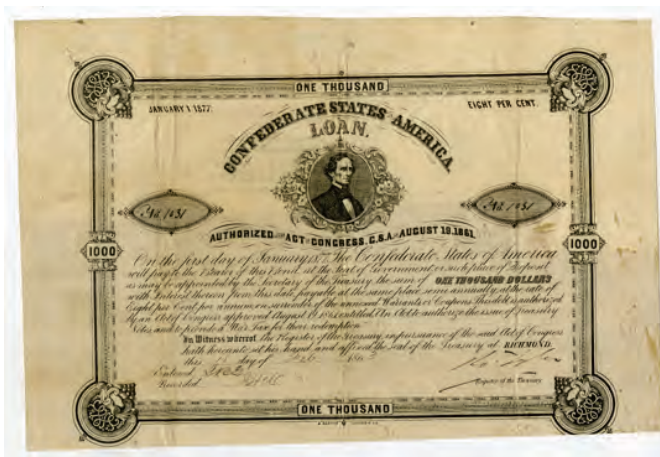 ONE THOUSAND
JANUARY 1. 1877.
EIGHT PER CENT.
CONFEDERATE STATES AMERICA
LOAN.
No. 1031
No. 1031
AUTHORIZED BY ACT OF CONGRESS, C.S.A. OF AUGUST 19. 1861.
1000
1000
On the first day of January 1877, The Confederate States of America
will pay to the Bearer of this Bond, at the Seat of Government or such place of Deposit
as may be appointed by the Secretary of the Treasury, the sum of ONE THOUSAND DOLLARS
with Interest thereon from this date, payable at the same place semi annually, at the rate of
Eight per Cent per annum on surrender of the annexed Warrants or Coupons. This debt is authorized
by an Act of Congress approved August 19, 1861, entitled "An Act to authorize the issue of Treasury
Notes and to provide a War Tax for their redemption
In Witness whereof, the Register of the Treasury, in pursuance of the said Act of Congress
hath hereunto set his hand and affixed the seal of the Treasury at RICHMOND,
this day of
Entered
Recorded
Register of the Treasury
ONE THOUSAND